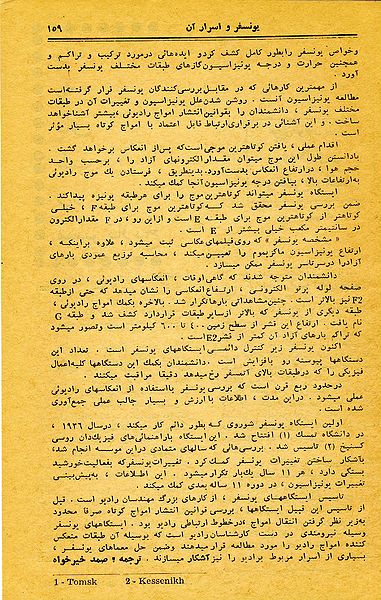 یونسفر و اسرار آن ۱۵۹
وخواص یونسفر رابطور کامل کشف کردو ایده‌هائی درمورد ترکیب و تراکم و
همچنین حرارت و درجه یونیزاسیون گازهای طبقات مختلف یونسفر بدست
آورد .
از مهمترین کارهائی که در مقابل بررسی‌کنندگان یونسفر قرار گرفته‌است
مطالعه یونیزاسیون آنست . روشن شدن علل یونیزاسیون و تغییرات آن در طبقات
مختلف یونسفر ، دانشمندان را بقوانین انتشار امواج رادیوئی ، بیشتر آشناخواهد
ساخت . و این آشنائی در برقراری ارتباط قابل اعتماد با امواج کوتاه بسیار مؤثر
است .
اقدام عملی ، یافتن کوتاهترین موجی است که پس از انعکاس برخواهد گشت .
بادانستن طول این موج میتوان مقدار الکترونهای آزاد را ، برحسب واحد
حجم هوا ، در ارتفاع انعکاس بدست آورد. بدینطریق ، فرستادن یک موج رادیوئی
به‌ارتفاعات بالا ، بیافتن درجه یونیزاسیون آنجا کمک میکند .
ایستگاه یونسفر میتواند کوتاهترین موج را برای هرطبقه یونیزه پیداکند .
ضمن بررسی یونسفر محقق شد که کوتاهترین موج برای طبقه F ، خیلی
کوتاهتر از کوتاهترین موج برای طبقه E است و ازاین رو ، در F مقدارالکترون
در سانتیمتر مکعب خیلی بیشتر از E است .
« مشخصه یونسفر » که روی فیلمهای عکاسی ثبت میشود ، علاوه براینکه ،
ارتفاع یونیزاسیون ماکزیموم را تعیین میکند ، محاسبه توزیع عمودی بارهای
آزادرا درسرتاسر یونسفر ممکن میسازد .
دانشمندان متوجه شدند که گاهی اوقات ، انعکاسهای رادیوئی ، در روی
صفحه لوله پرتو الکترونی ، ارتفاع انعکاسی را نشان میدهد که حتی ازطبقه
F2 نیز بالاتر است . چنین مشاهداتی بارها تکرار شد . بالاخره بکمک امواج رادیوئی ،
طبقه دیگری از یونسفر که بالاتر از سایر طبقات قراردارد کشف شد و طبقه G
نام یافت . ارتفاع این قشر از سطح زمین ۴۰۰ تا ۶۰۰ کیلومتر است وتصور میشود
که تراکم بارهای آزاد آن کمتر از قشر F2 است .
اکنون یونسفر زیر کنترل دائمی ایستگاههای یونسفر است . تعداد این
دستگاهها پیوسته رو بافزایش است . دانشمندان بکمک این دستگاهها کلیه اعمال
فیزیکی را که درطبقات بالای آتمسفر رخ میدهد دقیقا مراقبت میکنند .
درحدود ربع قرن است که بررسی یونسفر بااستفاده از انعکاسهای رادیوئی
عملی میشود . دراین مدت ، اطلاعات باارزش و بسیار جالب عملی جمع‌آوری
شده است .
اولین ایستگاه یونسفر شوروی که بطور دائم کار میکند ، درسال ۱۹۳۶ ،
در دانشگاه تمسک (۱) افتتاح شد . این ایستگاه باراهنمائی‌های فیزیک‌دان روسی
کسنیخ (۲) تاسیس شد . بررسی‌هائی که سالهای متمادی دراین موسسه انجام شد،
باشکار ساختن تغییرات یونسفر کمک کرد . تغییرات یونسفر که بفعالیت خورشید
بستگی دارد ، هر ۱۱ سال یک‌بار تکرار میشود . این اطلاعات ، به‌پیش‌بینی
تغییرات یونیزاسیون ، در دوره ۱۱ ساله بعدی کمک میکند .
تاسیس ایستگاههای یونسفر ، از کارهای بزرگ مهندسان رادیو است . قبل
از تاسیس این قبیل ایستگاهها ، بررسی قوانین انتشار امواج کوتاه صرفا محدود
به‌زیر نظر گرفتن انتقال امواج ، درخطوط ارتباطی رادیو بود . ایستگاههای یونسفر
وسیله نیرومندی در دست کارشناسان رادیو است که بوسیله آن طبقات منعکس
کننده امواج رادیو را مورد مطالعه قرار میدهند وضمن حل معماهای یونسفر ،
بسیاری از اسرار مربوط برادیو را نیز آشکار میسازند . ترجمه و صمد خیرخواه
1 - Tomsk 2 - Kessenikh